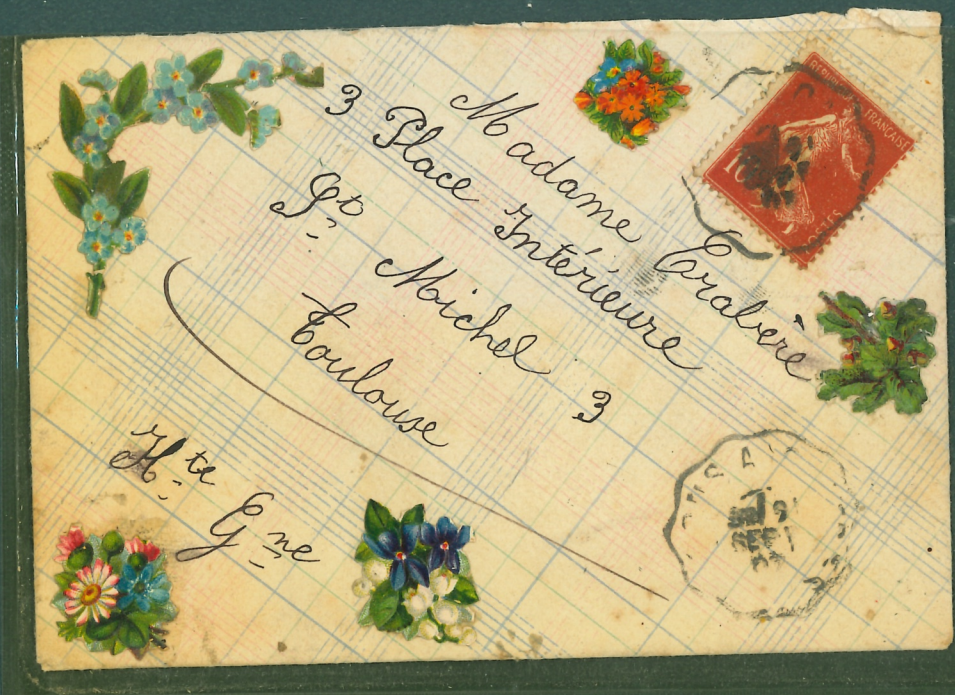 Madame Trabère
3 Place Intérieure
St Michel 3
Toulouse
Hte Gne
REPUBLIQUE FRANÇAISE
10
POSTES
SEPT